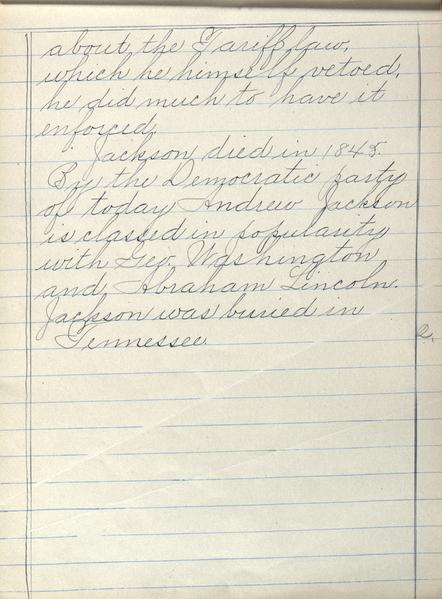 about the Tariff law,
which he himself vetoed,
he did much to have it
enforced.
Jackson died in 1845
By the Democratic party
of today Andrew Jackson
is classed in popularity
with Geo. Washington
and Abraham Lincoln.
Jackson was buried in
Tennessee.
e.